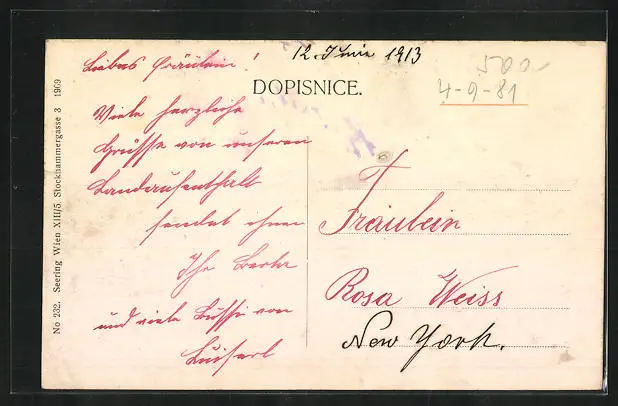 12. Junie 1913
Liebes Fräulein!
DOPISNICE.
500-
4-9-81
Viele herzliche
Grüsse von unseren
Landaufenthalt
sendet ihnen
Ihr Berta
und viele Bussi von
Luiserl
Fräulein
Rosa Weiss
New York.
No 232. Seering Wien XIII/5 Stockhammergasse 3 1909